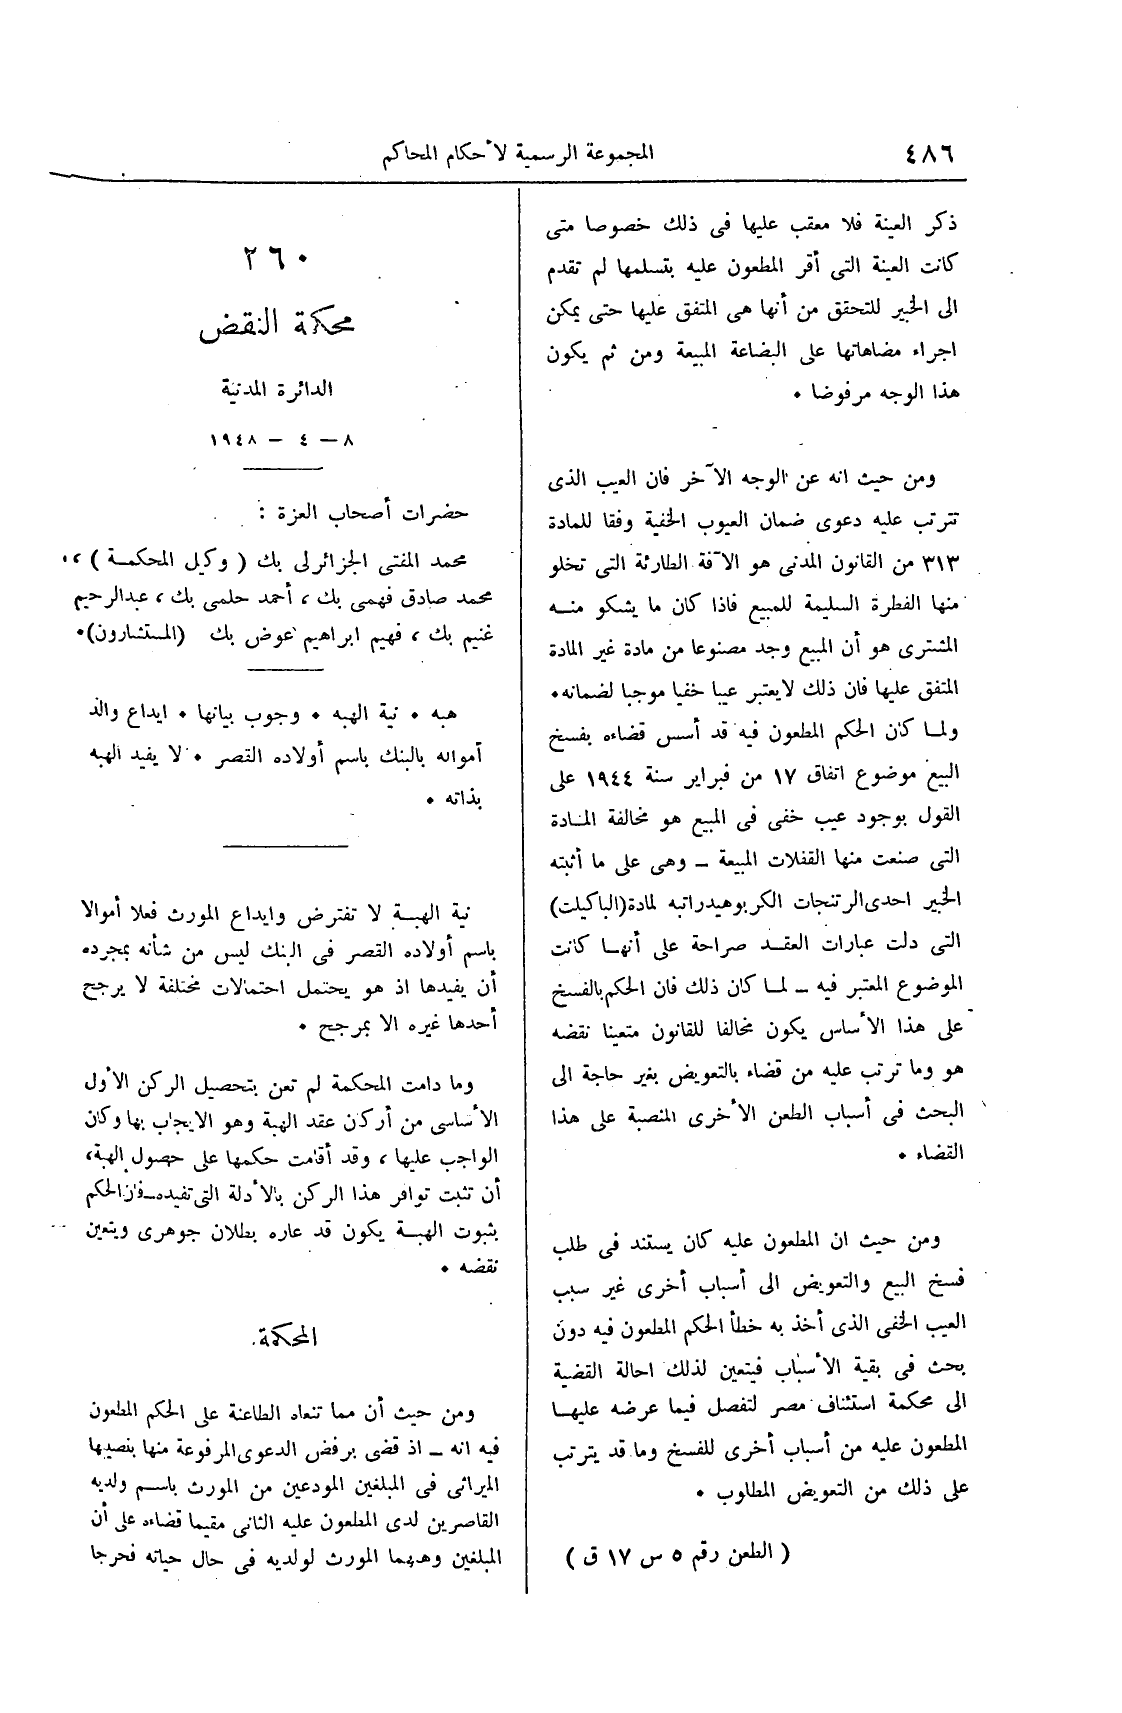 ٤٨٦
المجموعة الرسمية لأحكام المحاكم
ذكر العينة فلا معقب عليها فى ذلك خصوصا متى
كانت العينة التى أقر المطعون عليه بتسلمها لم تقدم
الى الخبير للتحقق من أنها هى المتفق عليها حتى يمكن
اجراء مضاهاتها على البضاعة المبيعة ومن ثم يكون
هذا الوجه مرفوضا .
ومن حيث انه عن الوجه الآخر فان العيب الذى
تترتب عليه دعوى ضمان العيوب الخفية وفقا للمادة
٣١٣ من القانون المدنى هو الآفة الطارئة التى تخلو
منها الفطرة السليمة للمبيع فاذا كان ما يشكو منه
المشترى هو أن المبيع وجد مصنوعا من مادة غير المادة
المتفق عليها فان ذلك لايعتبر عيبا خفيا موجبا لضمانه.
ولما كان الحكم المطعون فيه قد أسس قضاءه بفسخ
البيع موضوع اتفاق ١٧ من فبراير سنة ١٩٤٤ على
القول بوجود عيب خفى فى المبيع هو مخالفة المادة
التى صنعت منها القفلات المبيعة ــ وهى على ما أثبته
الخبير احدى الرتنجات الكربوهيدراتيه لمادة (الباكيلت)
التى دلت عبارات العقد صراحة على أنها كانت
الموضوع المعتبر فيه ــ لما كان ذلك فان الحكم بالفسخ
على هذا الأساس يكون مخالفا للقانون متعينا نقضه
هو وما ترتب عليه من قضاء بالتعويض بغير حاجة الى
البحث فى أسباب الطعن الأخرى المنصبة على هذا
القضاء .
ومن حيث ان المطعون عليه كان يستند فى طلب
فسخ البيع والتعويض الى أسباب أخرى غير سبب
العيب الخفى الذى أخذ به خطأ الحكم المطعون فيه دون
بحث فى بقية الأسباب فيتعين لذلك احالة القضية
الى محكمة استئناف مصر لتفصل فيما عرضه عليها
المطعون عليه من أسباب أخرى للفسخ وما قد يترتب
على ذلك من التعويض المطلوب .
( الطعن رقم ٥ س ١٧ ق )
٢٦٠
محكمة النقض
الدائرة المدنية
٨ – ٤ – ١٩٤٨
حضرات أصحاب العزة :
محمد المفتى الجزائرلى بك ( وكيل المحكمة ) ،
محمد صادق فهمى بك ، أحمد حلمى بك ، عبدالرحيم
غنيم بك ، فهيم ابراهيم عوض بك (المستشارون).
هبه . نية الهبه . وجوب بيانها . ايداع والد
أمواله بالبنك باسم أولاده القصر . لا يفيد الهبه
بذاته .
نية الهبة لا تفترض وايداع المورث فعلا أموالا
باسم أولاده القصر فى البنك ليس من شأنه بمجرده
أن يفيدها اذ هو يحتمل احتمالات مختلفة لا يرجح
أحدها غيره الا بمرجح .
وما دامت المحكمة لم تعن بتحصيل الركن الأول
الأساسى من أركان عقد الهبة وهو الايجاب بها وكان
الواجب عليها ، وقد أقامت حكمها على حصول الهبة،
أن تثبت توافر هذا الركن بالأدلة التى تفيده ــ فان الحكم
بثبوت الهبة يكون قد عاره بطلان جوهرى ويتعين
نقضه .
المحكمة
ومن حيث أن مما تنعاه الطاعنة على الحكم المطعون
فيه انه ــ اذ قضى برفض الدعوى المرفوعة منها بنصيبها
الميراثى فى المبلغين المودعين من المورث باسم ولديه
القاصرين لدى المطعون عليه الثانى مقيما قضاءه على أن
المبلغين وهبهما المورث لولديه فى حال حياته فخرجا